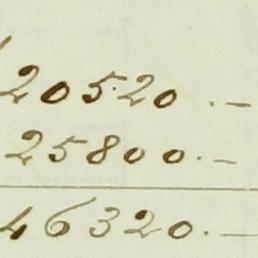 20520.-
25800.-
46320.-